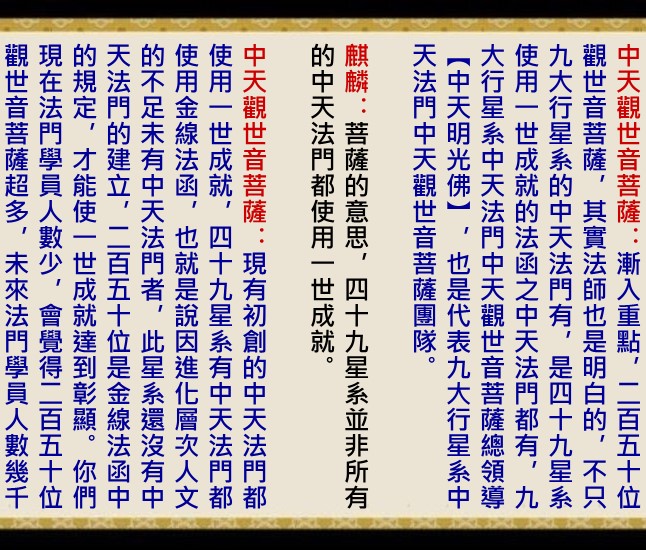 中天觀世音菩薩：漸入重點，二百五十位
觀世音菩薩，其實法師也是明白的，不只
九大行星系的中天法門有，是四十九星系
使用一世成就的法函之中天法門都有，九
大行星系中天法門中天觀世音菩薩總領導
【中天明光佛】，也是代表九大行星系中
天法門中天觀世音菩薩團隊。
麒麟：菩薩的意思，四十九星系並非所有
的中天法門都使用一世成就。
中天觀世音菩薩：現有初創的中天法門都
使用一世成就，四十九星系有中天法門都
使用金線法函，也就是說因進化層次人文
的不足未有中天法門者，此星系還沒有中
天法門的建立，二百五十位是金線法函中
的規定，才能使一世成就達到彰顯。你們
現在法門學員人數少，會覺得二百五十位
觀世音菩薩超多，未來法門學員人數幾千